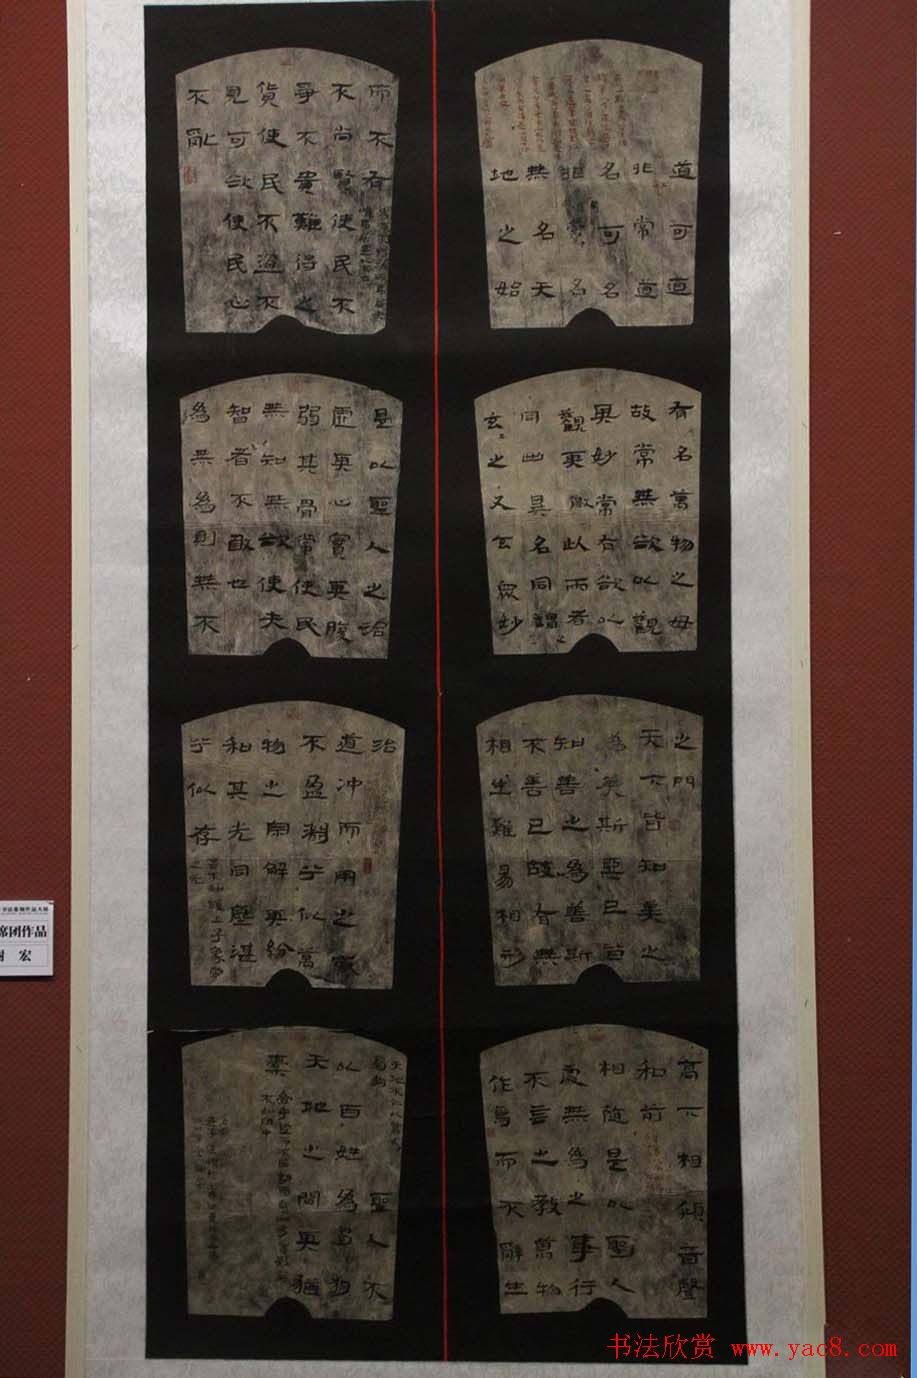 道可道
非常道
名可名
非常名
無名天
地之始
有名萬物之母
故常無欲以觀
其妙常有欲以
觀其徼此兩者
同出異名同謂
玄之又玄眾妙
之門
天下皆知美之
為美斯惡已皆
知善之為善斯
不善已故有無
相生難易相形
高下相傾音聲
和前
相隨是以聖人
處無為之事行
不言之教萬物
作焉而不辭生
而不有
不尚賢使民不
爭不貴難得之
貨使民不盜不
見可欲使民心
不亂
是以聖人之治
虛其心實其腹
弱其骨常使民
無知無欲使夫
智者不敢也
為無為則無不
治
道沖而用之或
不盈淵乎似萬
物之宗解其紛
和其光同塵湛
乎似存
吾不知誰之子象帝
之先
天地不仁以萬
芻狗
聖人不
以百姓為芻狗
天地之間其猶
橐
不如守中
席团作品
宏
书法欣赏 www.yac8.com